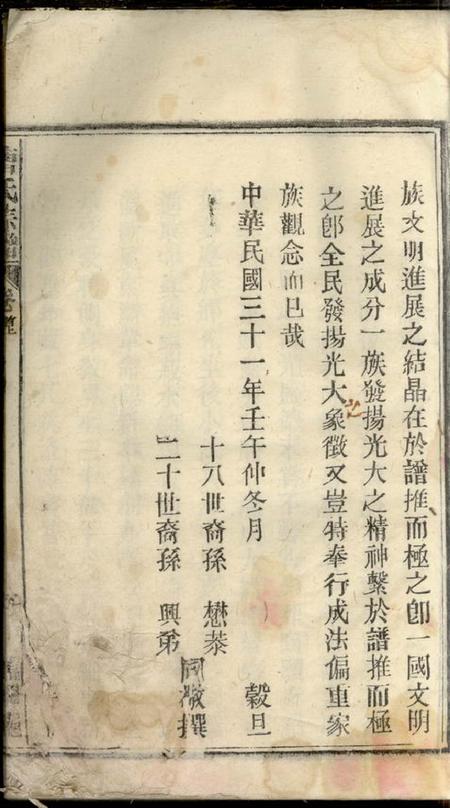 族文明進展之結晶在於譜推而極之卽一國文明
進展之成分一族發揚光大之精神繫於譜推而極
之卽全民發揚光大之象徵又豈特奉行成法偏重家
族觀念而已哉
中華民國三十一年壬午仲冬月 穀旦
十八世裔孫 懋棻
二十世裔孫 興弟
同敬撰
氏宗譜 卷壹